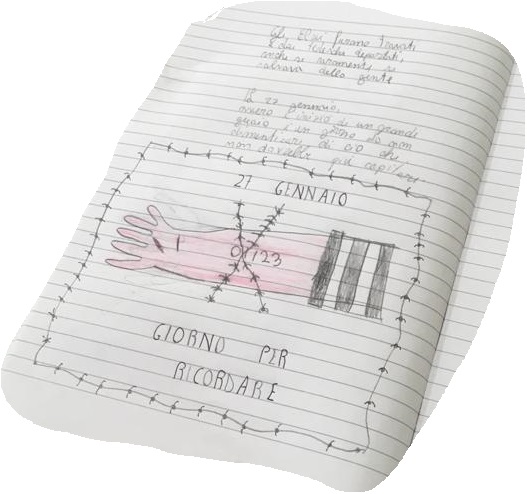 Gli Ebrei, furono trovati
e dai tedeschi deportati,
anche se raramente si
salvava della gente
Il 27 gennaio,
ovvero l'inizio di un grande
guaio è un giorno da non
dimenticare, di ciò che
non dovrebbe più capitare
27 GENNAIO
0123
GIORNO PER
RICORDARE